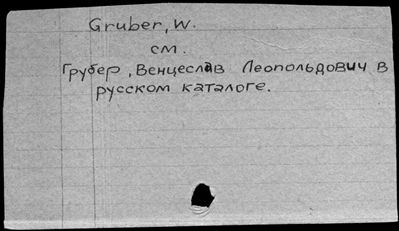 Gruber, W.
см.
Грубер, Венцеслав Леопольдович в
русском каталоге.